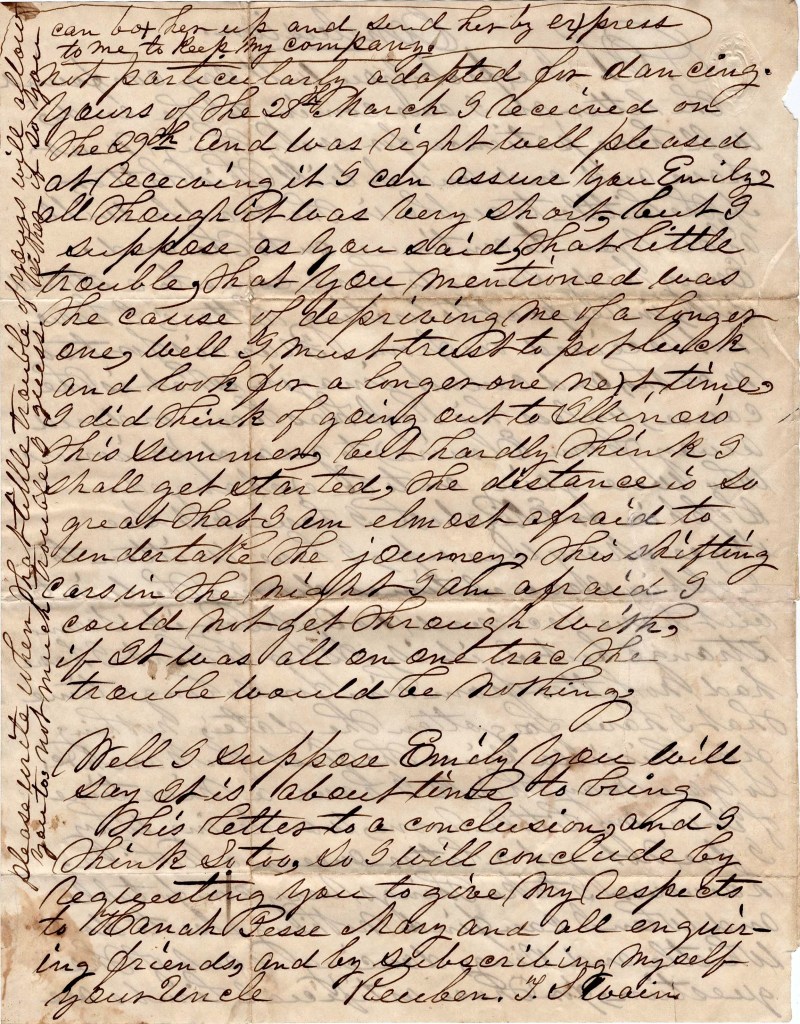 can box her up and send her by express
to me to keep my company.
not particularly adapted for dancing.
Yours of the 28th March I received on
the 29th and was right well pleased
at receiving it I can assure you Emily,
all though it was very short, but I
suppose as you said, that little
trouble, that you mentioned was
the cause of depriving me of a longer
one, well I must trust to pot luck
and look for a longer one next time,
I did think of going out to Illinois
this summer, but hardly think I
shall get started, the distance is so
great that I am elmost afraid to
undertake the journey, this shifting
cars in the night I am afraid I
could not get through with,
if it was all on one trac the
trouble would be nothing,
Well I suppose Emily you will
say it is about time to bring
this letter to a conclusion, and I
think so too, so I will conclude by
requesting you to give my respects
to Hanah Jesse Mary and all enquir-
ing friends, and by subscribing myself
your Uncle Reuben. T. Swain.
please write when that little trouble of yours will allow
you to. not much trouble I guess if so you